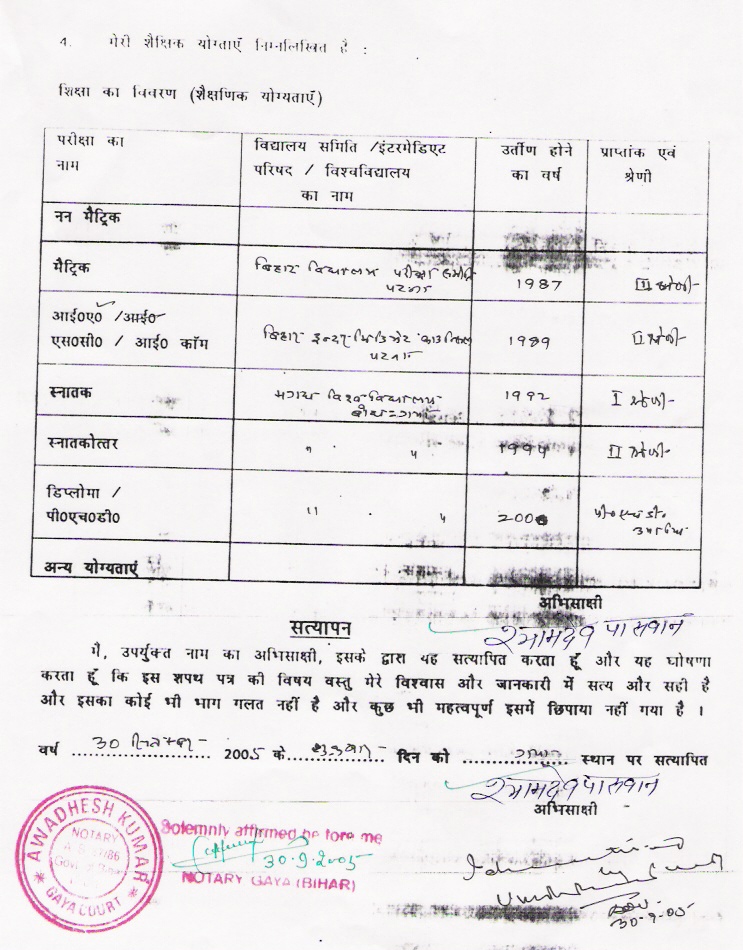 4. मेरी शैक्षिक योग्ताएँ निम्नलिखित है :
शिक्षा का विवरण (शैक्षणिक योग्यताएँ)
परीक्षा का विद्यालय समिति /इंटरमेडिएट उर्तीण होने प्राप्तांक एवं
नाम परिषद / विश्वविद्यालय का वर्ष श्रेणी
का नाम
नन मैट्रिक
मैट्रिक बिहार विद्यालय परीक्षा समिति 1987 II श्रेणी
पटना
आई०ए० /आई०
एस०सी० / आई० कॉम बिहार इन्टरमिडिएट काउन्सिल 1989 II श्रेणी
पटना
स्नातक मगध विश्वविद्यालय 1992 I श्रेणी
बोध-गया
स्नातकोत्तर " " 1994 II श्रेणी
डिप्लोमा /
पी०एच०डी० " " 2000 पी०एच०डी०
उपाधि
अन्य योग्यताएं
अभिसाक्षी
सत्यापन श्यामदेव पासवान
मै, उपर्युक्त नाम का अभिसाक्षी, इसके द्वारा यह सत्यापित करता हूँ और यह घोषणा
करता हूँ कि इस शपथ पत्र की विषय वस्तु मेरे विश्वास और जानकारी में सत्य और सही है
और इसका कोई भी भाग गलत नहीं है और कुछ भी महत्वपूर्ण इसमें छिपाया नहीं गया है ।
वर्ष 30 सितम्बर 2005 के शुक्रवार दिन को गया स्थान पर सत्यापित
श्यामदेव पासवान
अभिसाक्षी
AWADHESH KUMAR
NOTARY
GAYA COURT
Solemnly affirmed be fore me
30.9.2005
NOTARY GAYA (BIHAR)
30-9-05